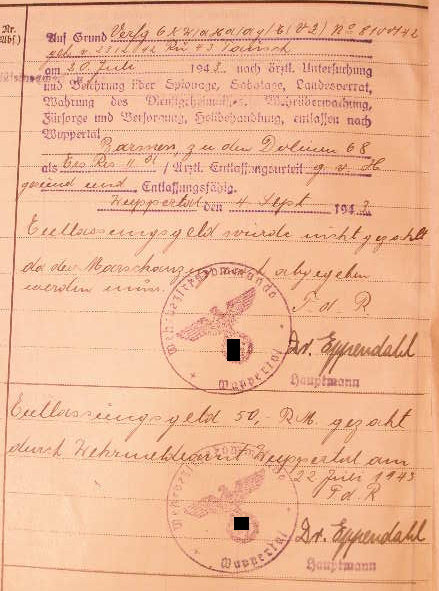 Nr.
Auf Grund Verfg
am 20. Juli 1943. nach ärztl. Untersuchung
und Belehrung über Spionage, Sabotage, Landesverrat,
Wahrung des Dienstgeheimnisses, Wehrüberwachung,
Fürsorge und Versorgung, Heilbehandlung, entlassen nach
Wuppertal
Barmen, zu den Dolinen 68
als Ers. Res. II / Ärztl. Entlassungsurteil g. v. H
gesund und Entlassungsfähig.
Wuppertal den 4 Sept 194
Entlassungsgeld wurde nicht gezahlt
da der Marschanzug noch abgegeben
werden muss.
F. d. R
Wehrbezirkskommando
Wuppertal
Dr. Eppendahl
Hauptmann
Entlassungsgeld 50,- RM. gezahlt
durch Wehrmeldeamt Wuppertal am
22 Juli 1943
F. d. R
Wuppertal
Dr. Eppendahl
Hauptmann